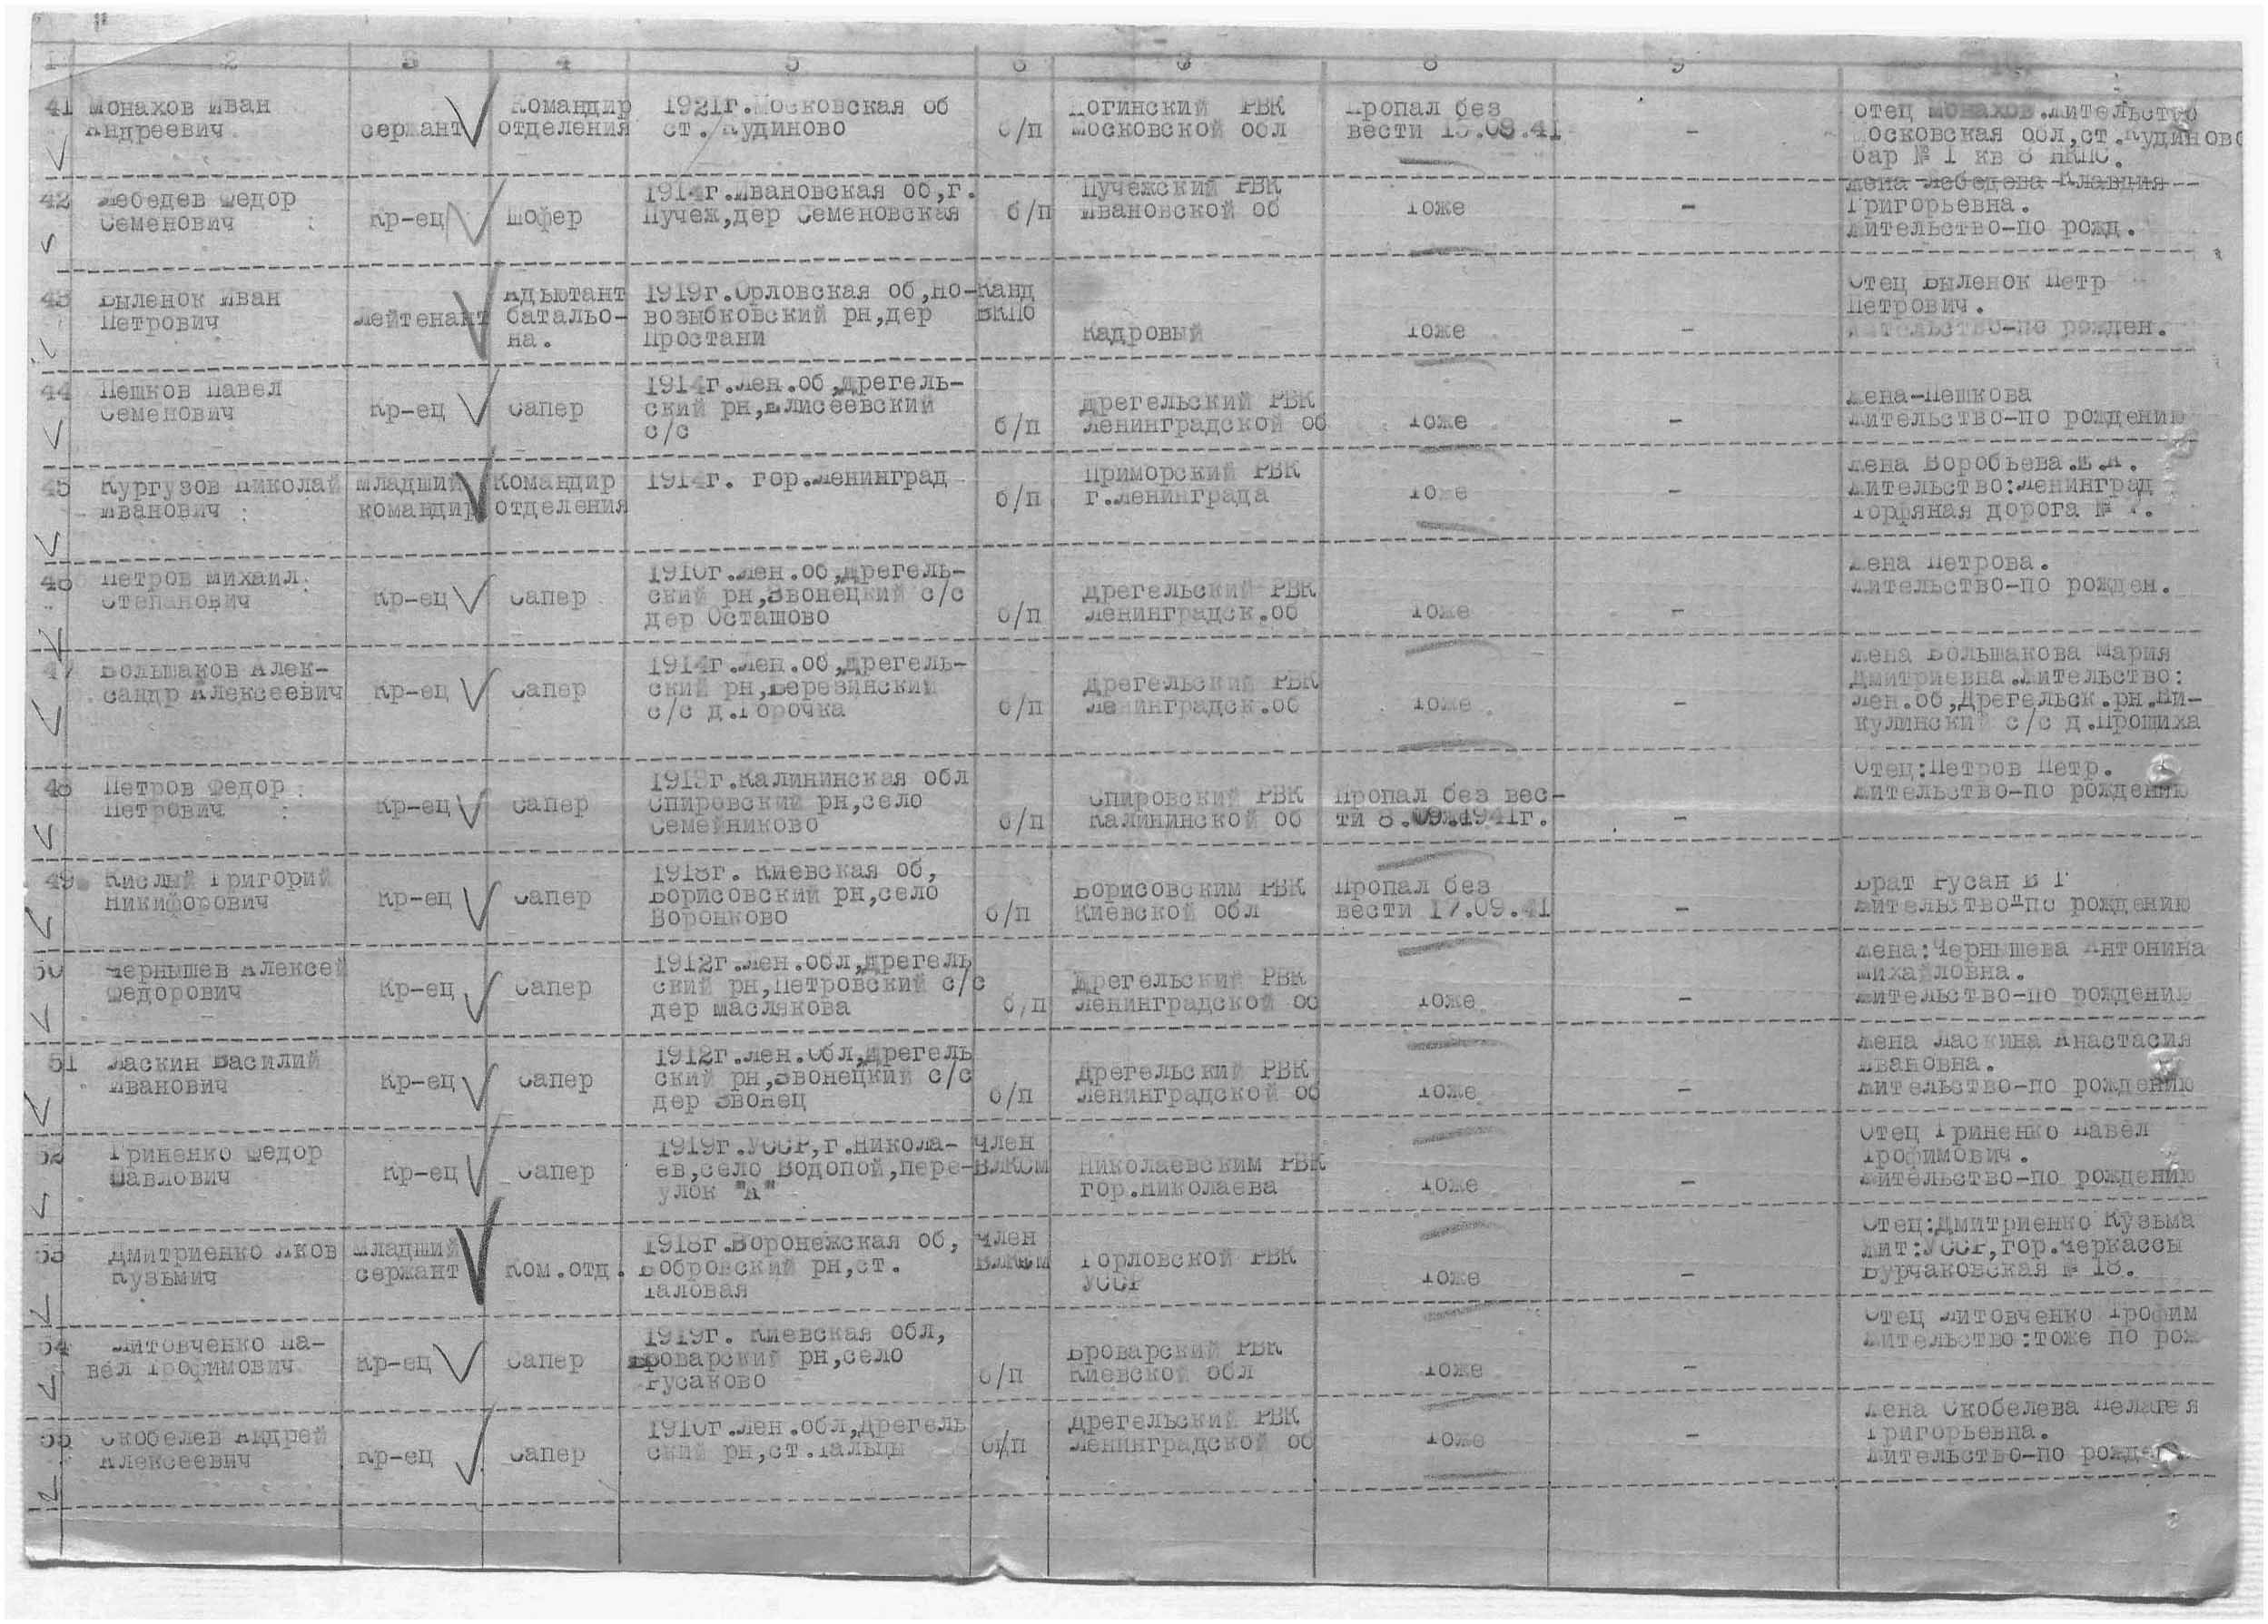 1 2 3 4 5 6 7 8 9
41 Монахов Иван Командир 1921г.Московская об Ногинский РВК Пропал без Отец Монахов.Жительство
Андреевич сержант отделения ст.Кудиново б/п Московской обл вести .09.41 – Московская обл,ст.Кудиново
бар № 1 кв 8 НКПС.
42 Лебедев Федор Кр-ец Шофер 1914г.Ивановская об,г. Пучежский РВК Жена Лебедева Клавдия
Семенович Пучеж,дер Семеновская б/п Ивановской об Тоже – Григорьевна.
Жительство-по рожд.
43 Быленок Иван Адьютант 1919г.Орловская об,но- Канд Отец Быленок Петр
Петрович Лейтенант батальо- возыбковский рн,дер ВКПб Петрович.
на. Простани Кадровый Тоже – Жительство-по рожден.
44 Пешков Павел 1914г.Лен.об,Дрегель- Жена-Пешкова
Семенович Кр-ец Сапер ский рн,Елисеевский Дрегельский РВК Жительство-по рождению
с/с б/п Ленинградской об Тоже –
45 Кургузов Николай Младший Командир 1914г. гор.Ленинград Приморский РВК Жена Воробьева.Е.А.
Иванович командир отделения б/п г.Ленинграда Тоже – Жительство:Ленинград
Торфяная дорога №
46 Петров Михаил 1910г.Лен.об,Дрегель- Жена Петрова.
Степанович Кр-ец Сапер ский рн,Звонецкий с/с Дрегельский РВК Жительство-по рожден.
дер Осташово б/п Ленинградск.об Тоже –
47 Большаков Алек- 1914г.Лен.об,Дрегель- Жена Большакова Мария
сандр Алексеевич Кр-ец Сапер ский рн,Березинский Дрегельский РВК Дмитриевна.Жительство:
с/с д.Горочка б/п Ленинградск.об Тоже – Лен.об,Дрегельск.рн.Ни-
кулинский с/с д.Прошиха
48 Петров Федор 1913г.Калининская обл Отец:Петров Петр.
Петрович Кр-ец Сапер Спировский рн,село Спировский РВК Пропал без вес- Жительство-по рождению
Семейниково б/п Калининской об ти 8.09.1941г. –
49 Кислый Григорий 1918г. Киевская об, Брат Русан В Г
Никифорович Кр-ец Сапер Борисовский рн,село Борисовским РВК Пропал без Жительство-по рождению
Воронково б/п Киевской обл вести 17.09.41 –
50 Чернышев Алексей 1912г.Лен.обл,Дрегель Жена:Чернышева Антонина
Федорович Кр-ец Сапер ский рн,Петровский с/с Дрегельский РВК Михайловна.
дер Маслякова б/п Ленинградской об Тоже – Жительство-по рождению
51 Ласкин Василий 1912г.Лен.Обл,Дрегель Жена Ласкина Анастасия
Иванович Кр-ец Сапер ский рн,Звонецкий с/с Дрегельский РВК Ивановна.
дер Звонец б/п Ленинградской об Тоже – Жительство-по рождению
52 Гриненко Федор 1919г.УССР,г.Никола- Член Отец Гриненко Павел
Павлович Кр-ец Сапер ев,село Водопой,пере- ВЛКСМ Николаевским РВК Трофимович.
улок "А" гор.Николаева Тоже – Жительство-по рождению
53 Дмитриенко Яков Младший 1918г.Воронежская об, Член Отец:Дмитриенко Кузьма
Кузьмич сержант Ком.отд. Бобровский рн,ст. ВЛКСМ Горловской РВК Жит:УССР,гор.Черкассы
Таловая УССР Тоже – Бурчаковская № 18.
54 Литовченко Па- 1919г. Киевская обл, Отец Литовченко Трофим
вел Трофимович Кр-ец Сапер Броварский рн,село Броварский РВК Жительство:тоже по рож
Русаково б/п Киевской обл Тоже –
55 Скобелев Андрей 1910г.Лен.обл,Дрегель Дрегельский РВК Жена Скобелева Пелагея
Алексеевич Кр-ец Сапер ский рн,ст.Тальцы б/п Ленинградской об Тоже – Григорьевна.
Жительство-по рожден.